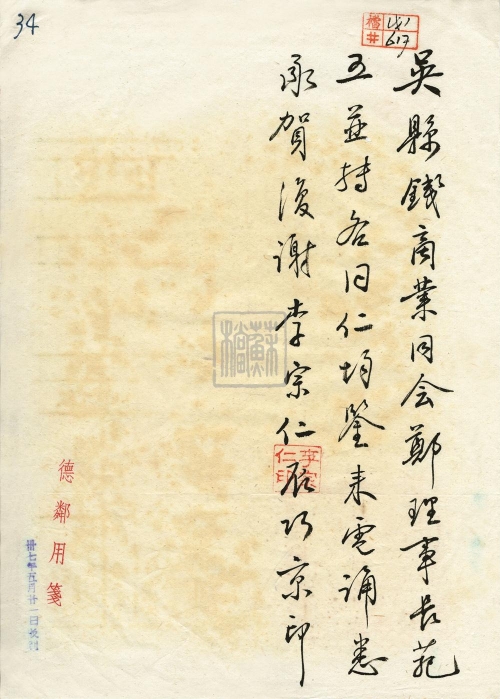 34
吳縣錢商業同会鄭理事長苑
五並轉各同仁均鑒来電誦悉
承賀復謝李宗仁辰巧京印
李宗仁印
蘇檔
德鄰用箋
卅七年五月廿一日收到